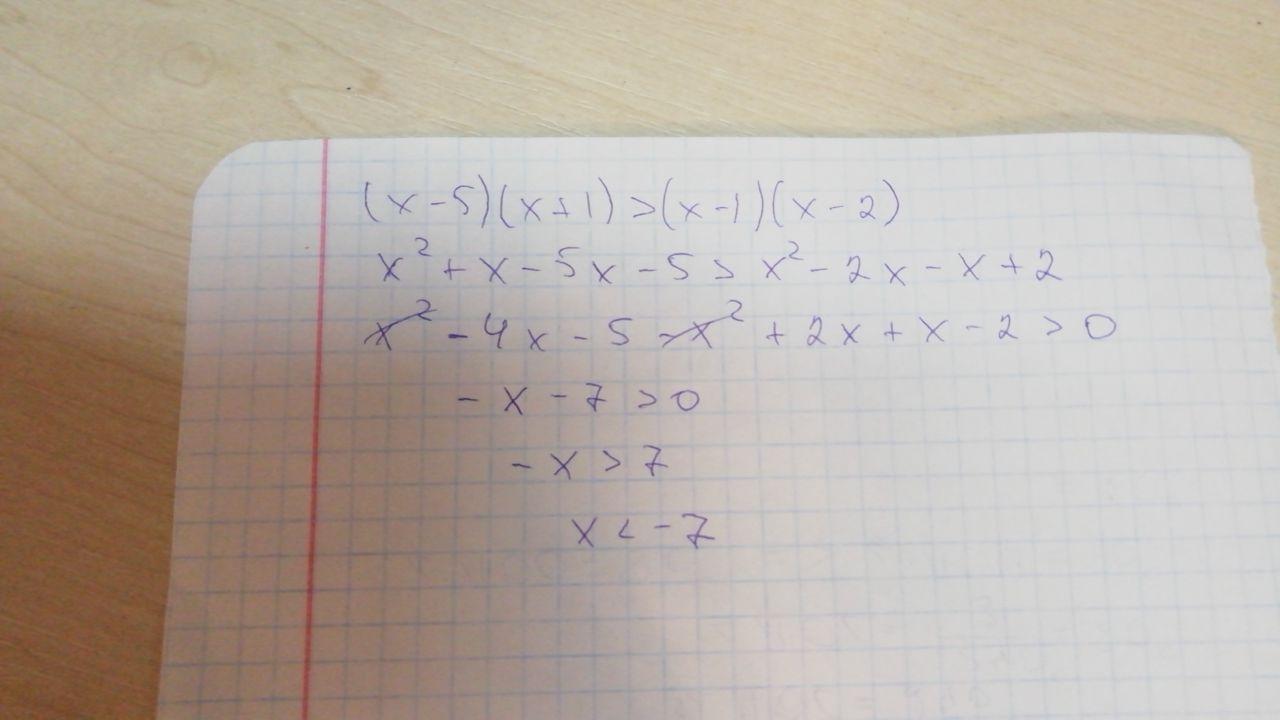 (x-5)(x+1)>(x-1)(x-2)
x²+x-5x-5>x²-2x-x+2
x²-4x-5-x²+2x+x-2>0
-x-7>0
-x>7
x<-7